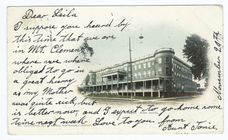 Dear Leila
I suppose you heard by
this time that we are
in Mt. Clemens
where we were
obliged to go in
a great hurry
as my Mother
was quite sick, but
is better now and I expect to go home some
time next week. Love to you from
Aunt
November 20th